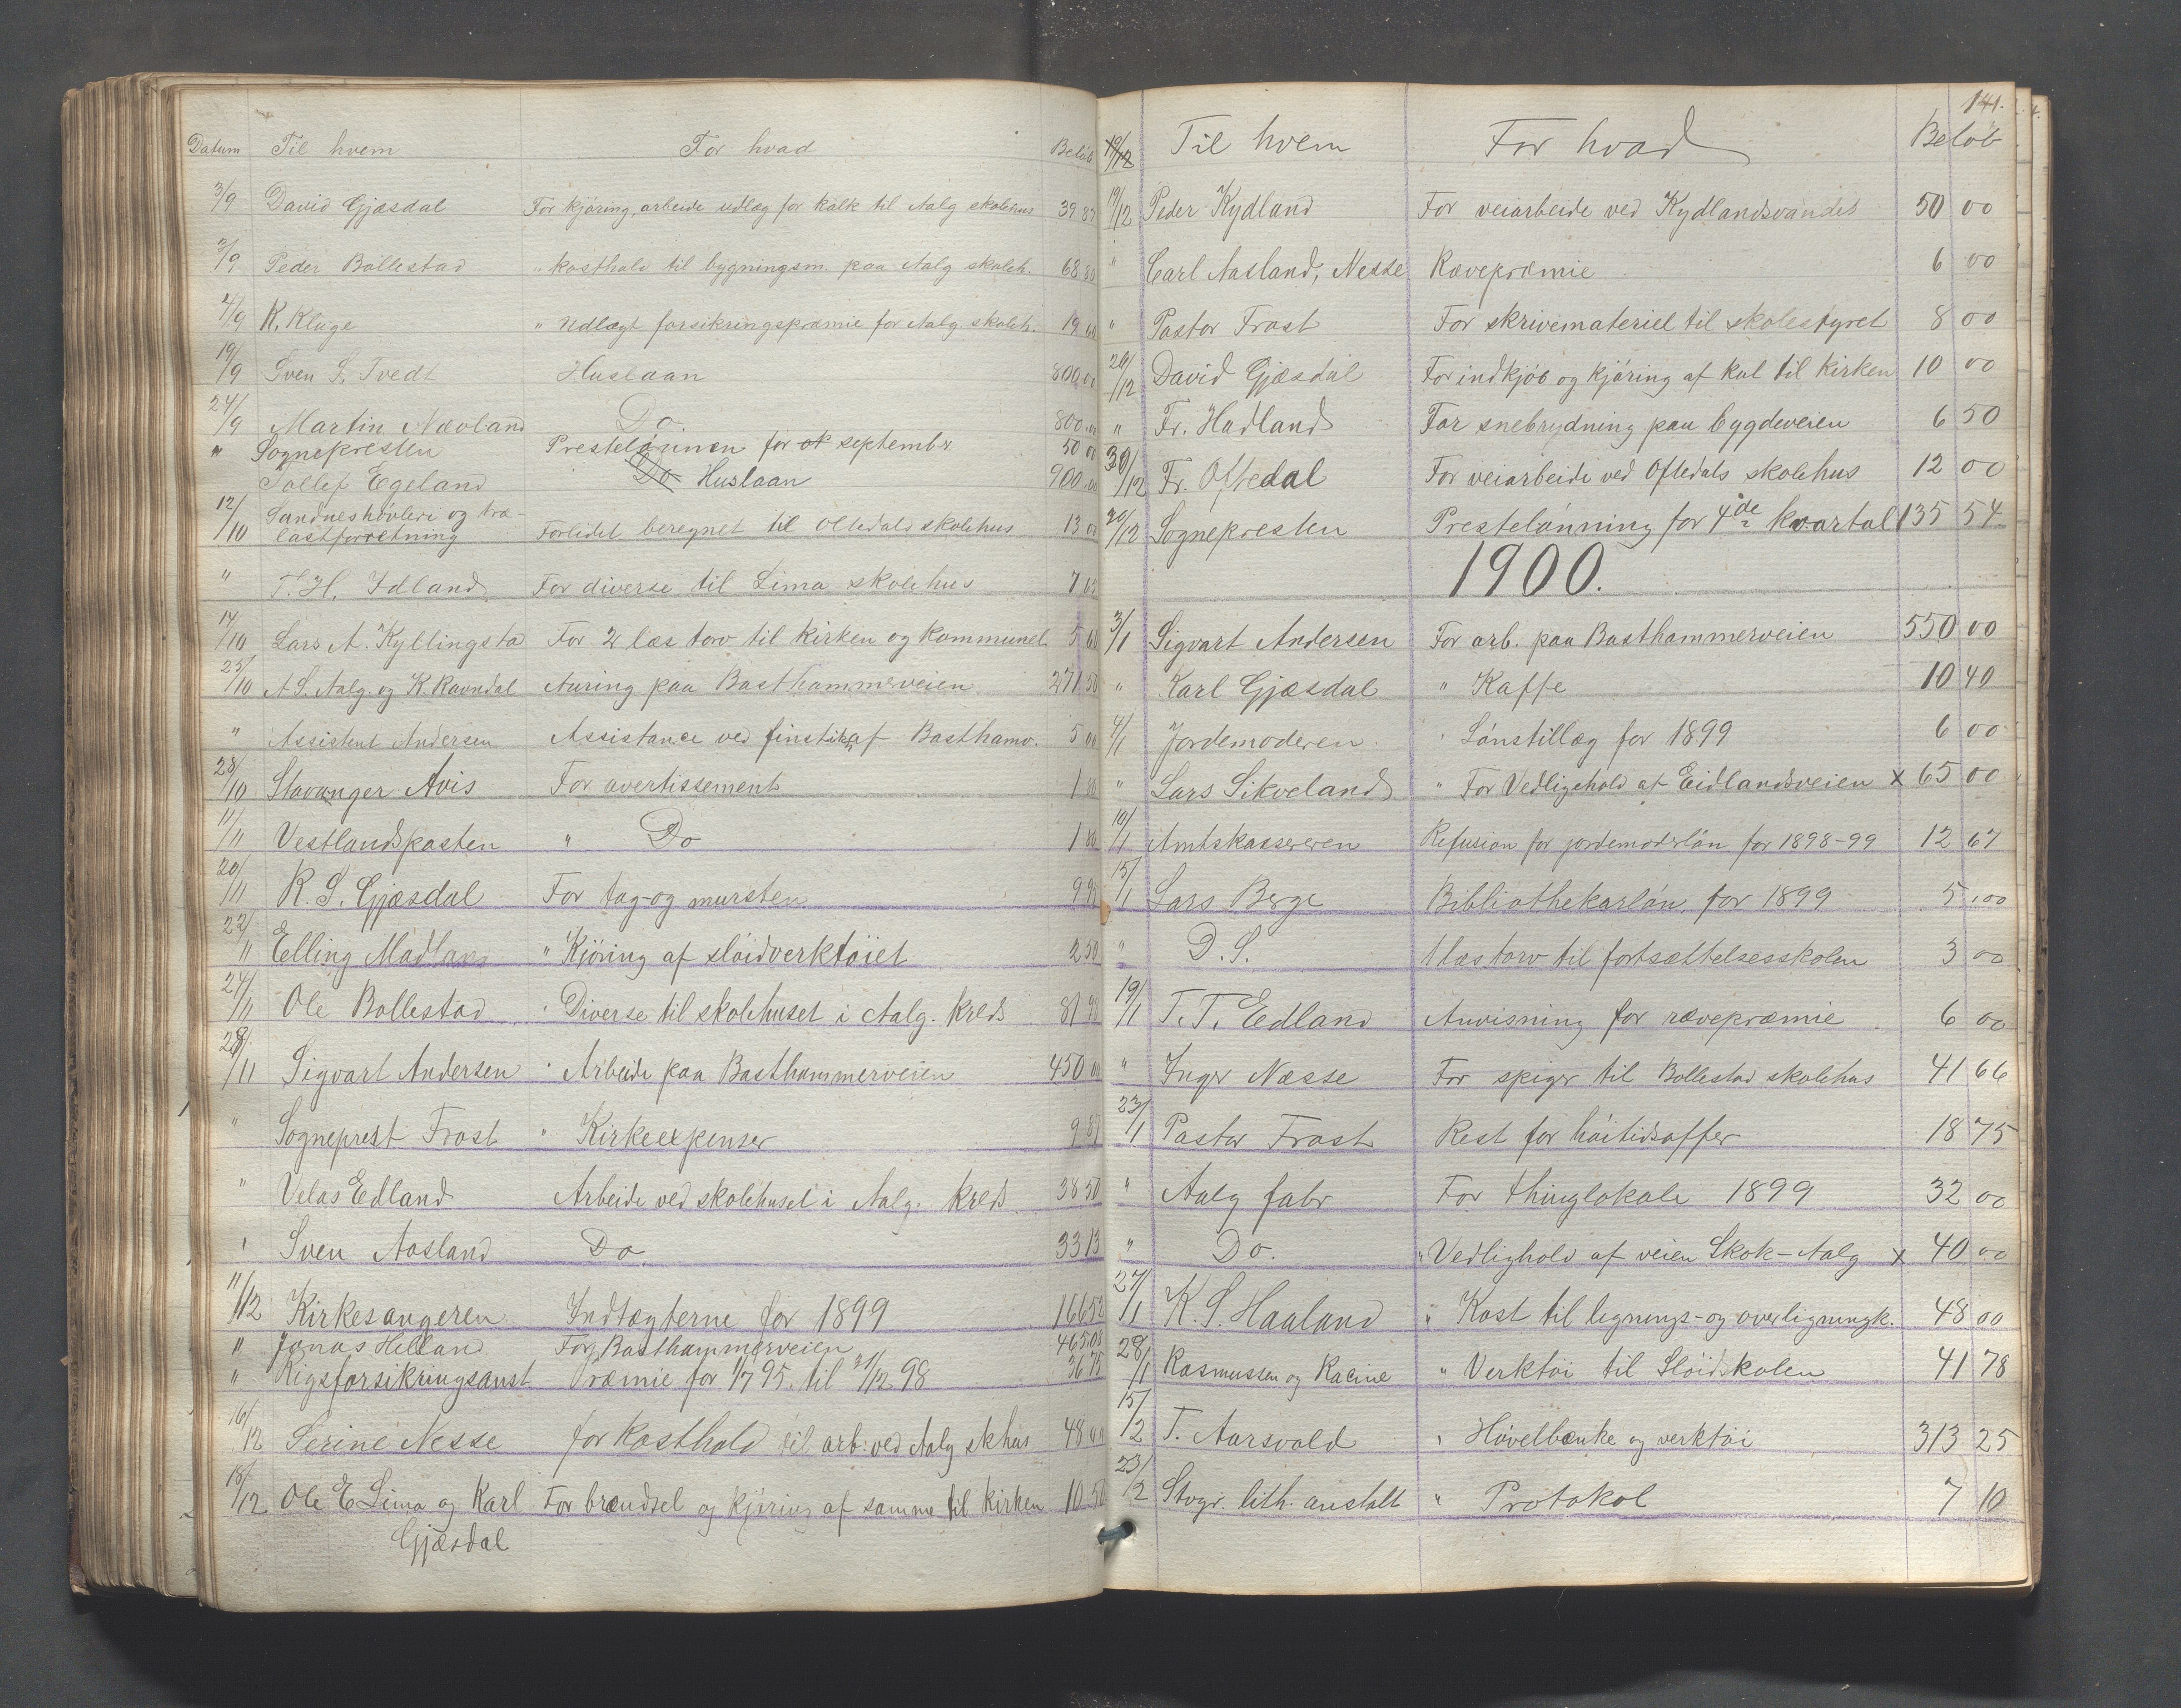 Datum Til hvem For hvad Beløb
3/9 David Gjæsdal For kjøring, arbeide udlæg for kalk til Aalg skolehus 39 87
3/9 Peder Bollestad " kosthold til bygningsm. paa Aalg skoleh. 68 80
4/9 K. Kluge " Udlægt forsikringspræmie for Aalg. skoleh. 19 60
19/9 Sven S. Tvedt Huslaan 800,00
24/9 Martin Nævland Do. 800,00
" Sognepresten Prestelønnen for ok september 50 00
Tollef Egeland Do Huslaan 900,00
12/10 Sandnes høvleri og træ-
lastforretning Forlidet beregnet til Oltedals skolehus 13 00
" T. H. Idland For diverse til Lima skolehus 7 65
14/10 Lars A. Kyllingstad For 2 læs torv til kirken og kommunel. 5 60
25/10 A S. Aalg. og K. Ravndal Auring paa Basthammerveien 271 50
" Assistent Andersen Assistance ved finstik. af Basthamv. 5 00
28/10 Stavanger Avis For avertissement 1 80
11/11 Vestlandsposten " Do 1 80
20/11 R. S. Gjæsdal For tag- og mursten 9 90
22/11 Elling Madland " Kjøring af sløidverktøiet 2 50
24/11 Ole Bollestad " Diverse til skolehuset i Aalg. kreds 81 90
28/11 Sigvart Andersen " Arbeide paa Basthammerveien 450 00
" Sogneprest Frost " Kirkeexpenser 9 89
" Velas Edland Arbeide ved skolehuset i Aalg. kreds 38 50
" Sven Aasland Do. 33 13
11/12 Kirkesangeren Indtægterne for 1899 166 52
" Jonas Helland For Basthammerveien 465.08
" Rigsforsikringsanst Præmie for 1/7 95. til 31/12 98 36 75
16/12 Serine Nesse for kosthold til arb: ved Aalg skhus 48 00
18/12 Ole E Lima og Karl For brændsel og kjøring af samme til kirken 10 50
Gjæsdal
141.
19/12 Til hvem For hvad Beløb
19/12 Peder Kydland For veiarbeide ved Kydlandsvandet 50 00
" Carl Aasland, Nesse Rævepræmie 6 00
" Pastor Frost For skrivemateriel til skolestyret 8 00
20/12 David Gjæsdal For indkjøb og kjøring af kul til kirken 10 00
" Fr. Hadland For snebrydning paa bygdeveien 6 50
30/12 Fr. Oftedal For veiarbeide ved Oftedals skolehus 12 00
20/12 Sognepresten Prestelønning for 4de kvartal 135 54
1900.
3/1 Sigvart Andersen For arb. paa Basthammerveien 550 00
" Karl Gjæsdal " Kaffe 10 40
4/1 Jordemoderen " Lønstillæg for 1899 6 00
" Lars Sikveland " For Vedligehold af Eidlandsveien x 65 00
10/1 Amtskassereren Refusion for jordemoderløn for 1898-99 12 67
15/1 Lars Berge Bibliothekarløn. for 1899 5,00
" D. S. 1 læs torv til fortsættelsesskolen 3 00
19/1 T. T. Edland Anvisning for rævepræmie 6 00
" Inger Næsse For spiger til Bollestad skolehus 41 66
23/1 Pastor Frost Rest for høitidsoffer 18 75
" Aalg fabr For thinglokale 1899 32 00
" Do. " Vedlighold af veien Skok-Aalg x 40 00
27/1 K. S. Haaland " Kost til lignings- og overligningk. 48 00
28/1 Rasmussen og Racine " Verktøi til Sløidskolen 41 78
15/2 T. Aarsvold " Høvelbænke og verktøi 313 25
23/2 Stvgr. lith. anstalt " Protokol 7 10